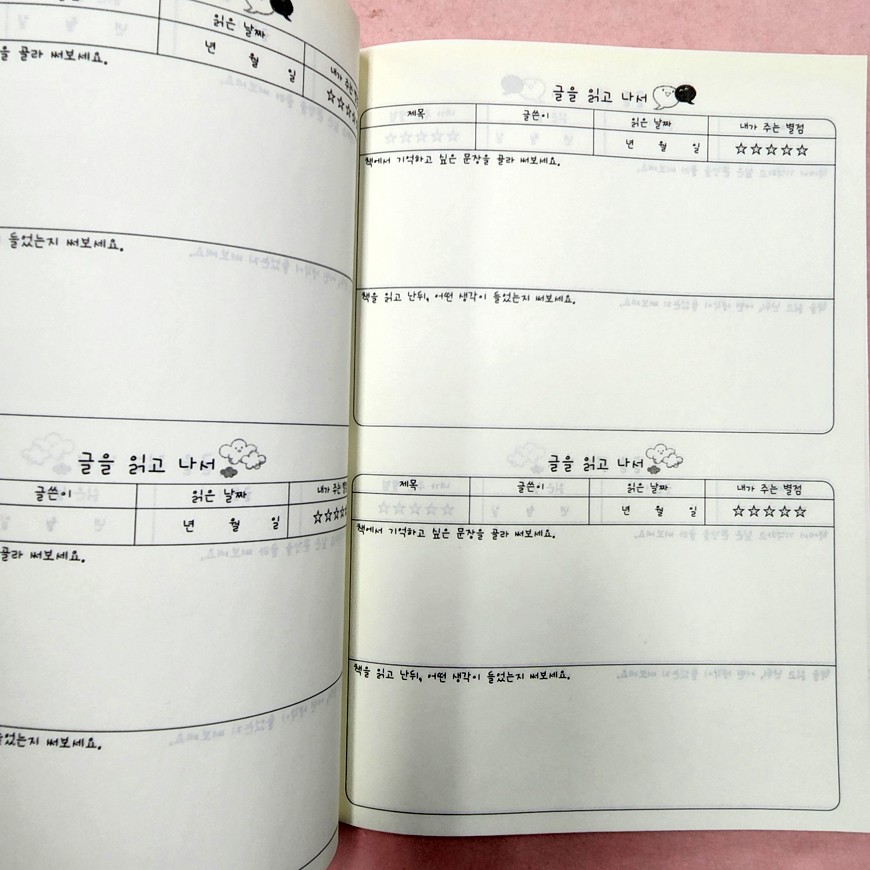 읽은 날짜
년 월 일
내가 주는
☆☆☆☆
을 골라 써보세요.
들었는지 써보세요.
글을 읽고 나서
글쓴이 읽은 날짜 내가 주는
년 월 일 ☆☆☆
골라 써보세요.
들었는지 써보세요.
글을 읽고 나서
제목 글쓴이 읽은 날짜 내가 주는 별점
년 월 일 ☆☆☆☆☆
책에서 기억하고 싶은 문장을 골라 써보세요.
책을 읽고 난뒤, 어떤 생각이 들었는지 써보세요.
글을 읽고 나서
제목 글쓴이 읽은 날짜 내가 주는 별점
년 월 일 ☆☆☆☆☆
책에서 기억하고 싶은 문장을 골라 써보세요.
책을 읽고 난뒤, 어떤 생각이 들었는지 써보세요.